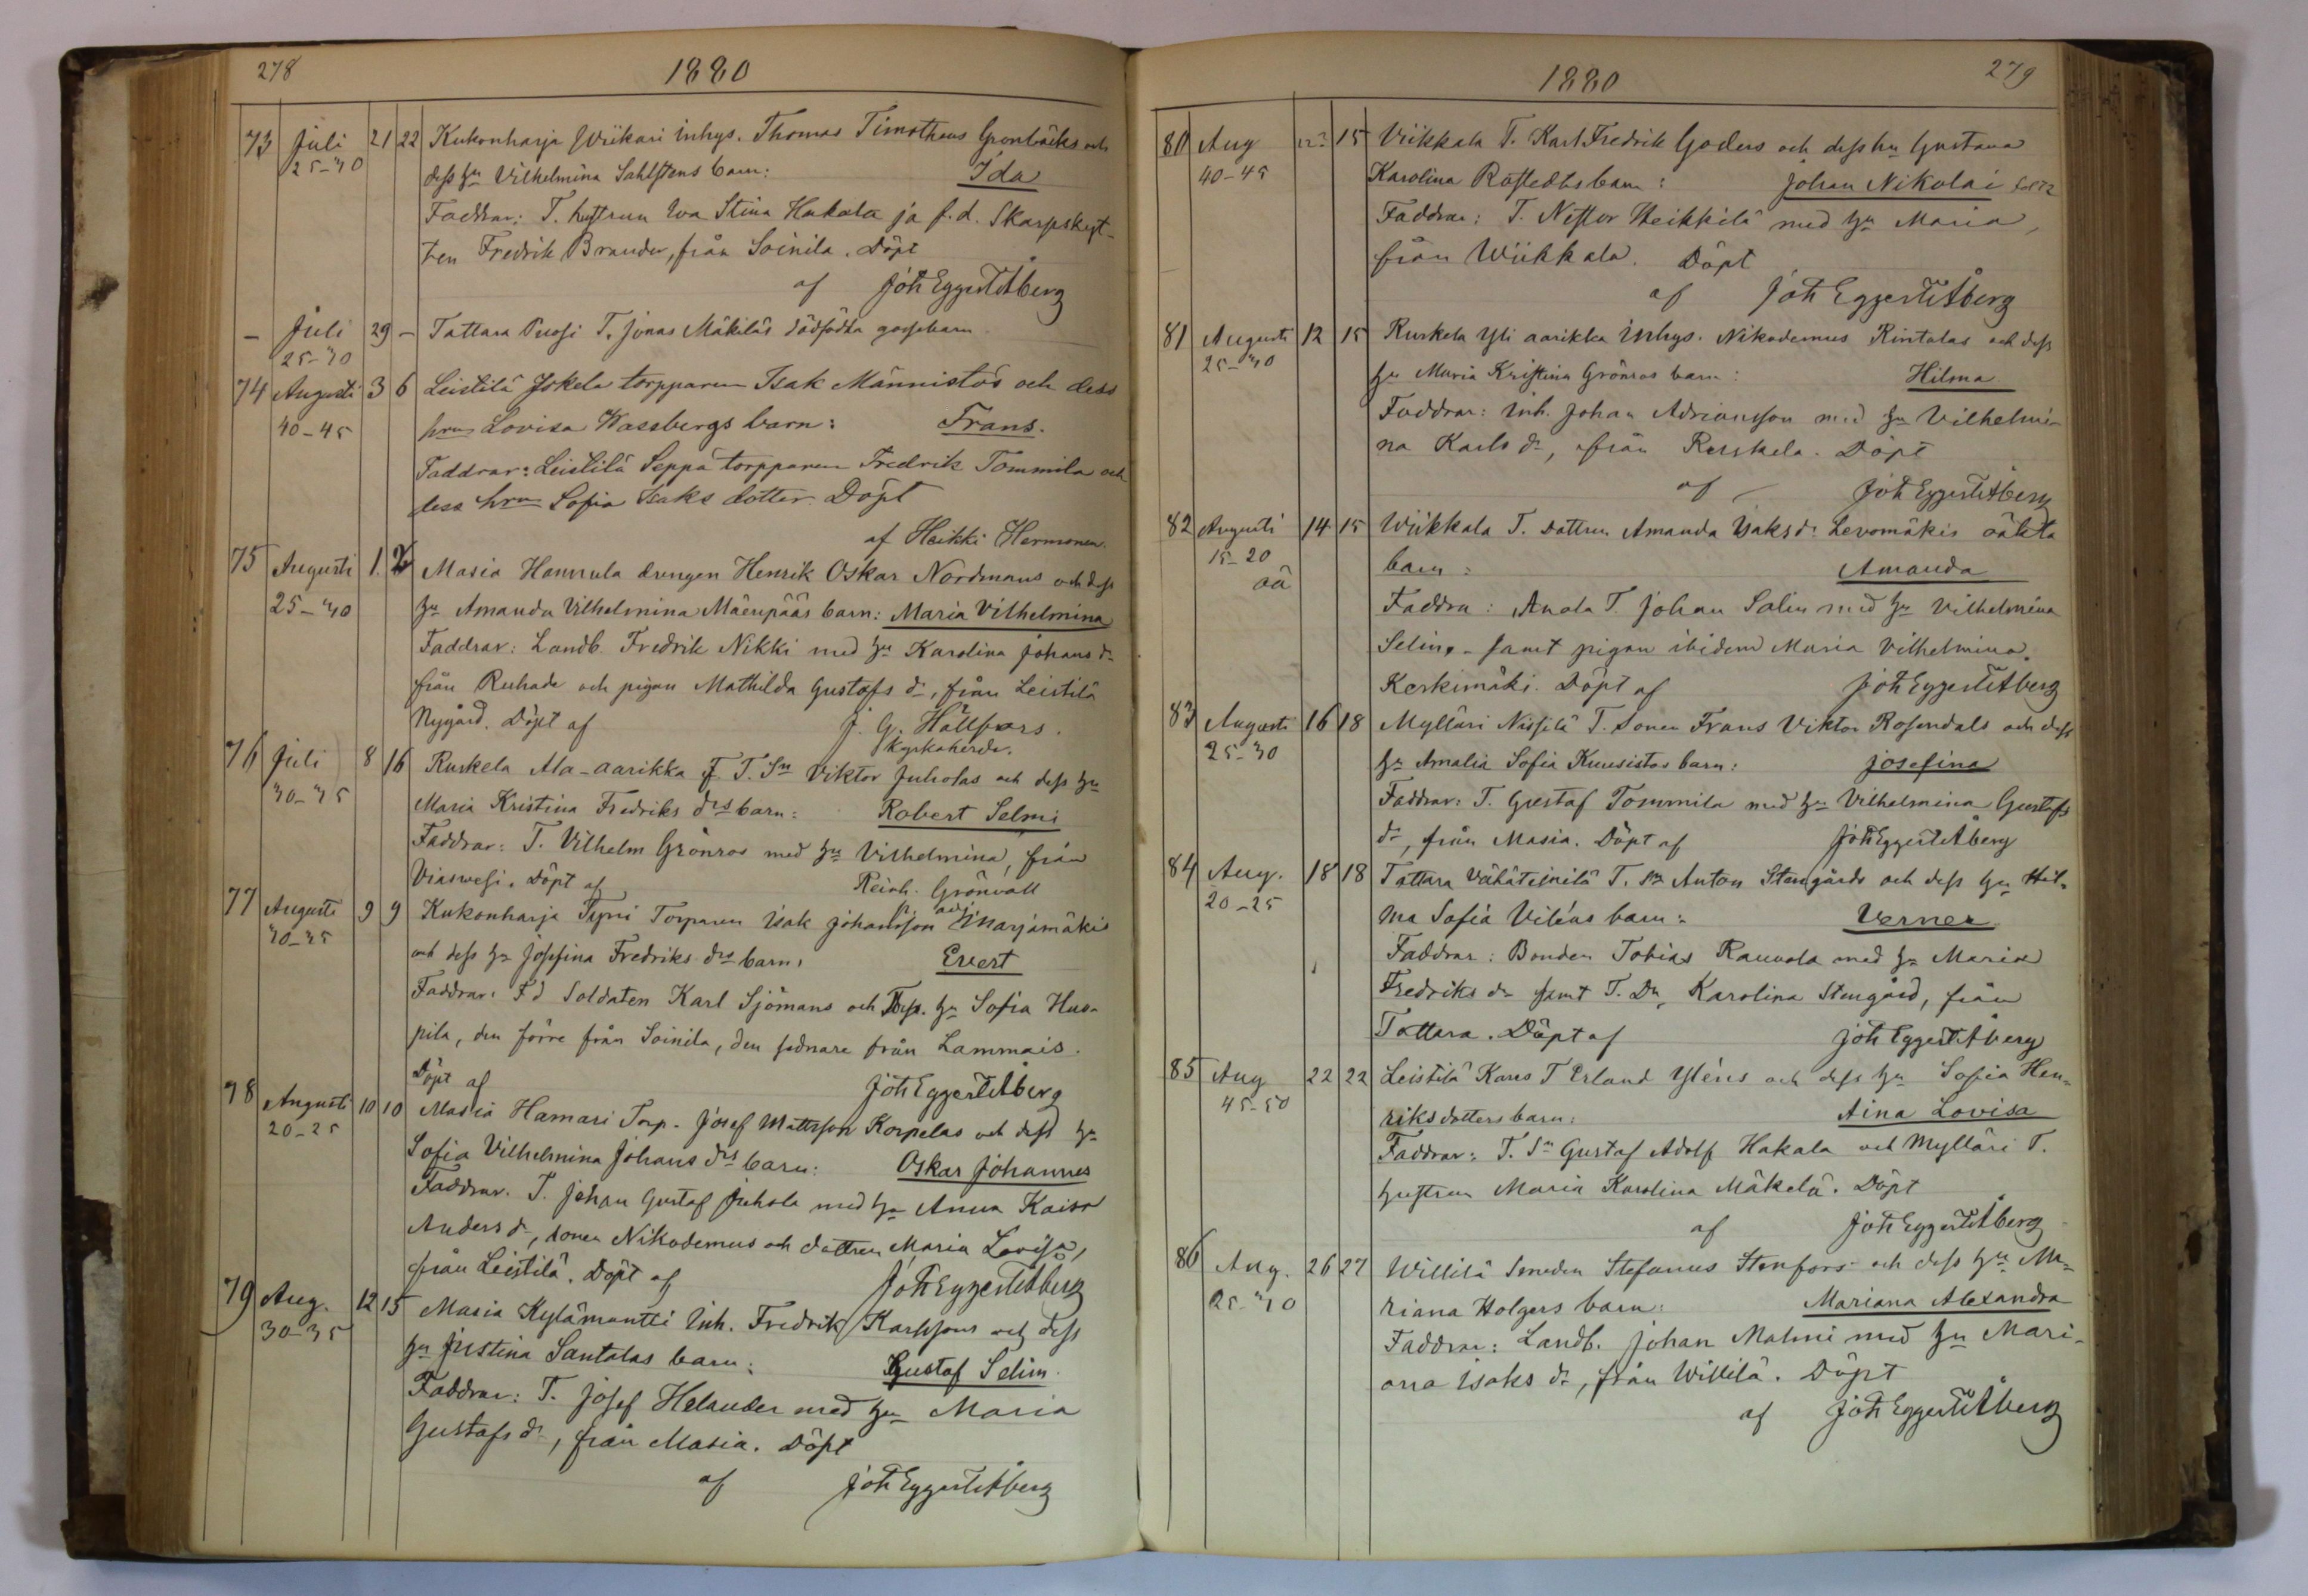 278
1880
73 Juli 21 22 Kukonharja Wiikari inhys. Thomas Timotheus Grönbäcks och
25-30 dess hu Vilhelmina Sahlstens barn: Ida
Faddrar: T. hustrun Eva Stina Hakala ja f.d. Skarpskyt-
ten Fredrik Brander, från Soinila. Döpt
af Joh Eggert Åberg
– Juli 29 – Tattara Puosi T. Jonas Mäkiläs dödfödda gossebarn
25-30
74 Augusti 3 6 Leistilä Jokela torpparen Isak Männistös och dess
40-45 hru Lovisa Wassbergs barn: Frans.
Faddrar: Leistilä Seppä torpparen Fredrik Tommila och
dess hru Sofia Isaks dotter. Döpt
af Heikki Hermonen.
75 Augusti 1. 2 Masia Hannula drengen Henrik Oskar Nordmans och dess
25-30 hu Amanda Vilhelmina Mäenpääs barn: Maria Vilhelmina
Faddrar: Landb. Fredrik Nikki med hu Karolina Johans dr
från Ruhade och pigan Mathilda Gustafs dr, från Leistilä
Nygård. Döpt af J. G. Hällfors.
Kyrkoherde.
76 Juli 8 16 Ruskela Ala-aarikka T. Sn Viktor Juholas och dess hu
30-35 Maria Kristina Fredriks drs barn: Robert Selmi
Faddrar: T. Vilhelm Grönros med hu Vilhelmina, från
Viasvesi. Döpt af Reinh. Grönvall
p. adj.
77 Augusti 9 9 Kukonharja Tyni Torparen Isak Johansson Marjamäkis
30-35 och dess hu Josefina Fredriks drs barn: Evert
Faddrar: Fd Soldaten Karl Sjömans och Torp. hu Sofia Huo-
pila, den förre från Soinila, den sednare från Lammais.
Döpt af Joh Eggert Åberg
78 Augusti 10 10 Masia Hamari Torp. Josef Mattsson Korpelas och dess hu
20-25 Sofia Vilhelmina Johans drs barn: Oskar Johannes
Faddrar. T. Johan Gustaf Juhola med hu Anna Kaisa
Anders dr, sonen Nikodemus och dottren Maria Lovisa,
från Leistilä. Döpt af Joh Eggert Åberg
79 Aug. 12 15 Masia Kylämantti Inh. Fredrik Karlssons och dess
30-35 hu Justina Santalas barn: Gustaf Selim.
Faddrar: T. Josef Helander med hu Maria
Gustafs dr, från Masia. Döpt
af Joh Eggert Åberg
1880
279
80 Aug 12 15 Viikkala T. Karl Fredrik Goders och dess hu Gustava
40-45 Karolina Rostedts barn: Johan Nikolai
Faddrar: T. Nestor Heikkilä med hu Maria,
från Wiikkala. Döpt
af Joh Eggert Åberg
81 Augusti 12 15 Ruskela Yli aarikka Inhys. Nikodemus Rintalas och dess
25-30 hu Maria Kristina Grönros barn: Hilma
Faddrar: Inh. Johan Adriansson med hu Vilhelmi-
na Karls dr, från Ruskela. Döpt
af Joh Eggert Åberg
82 Augusti 14 15 Wiikkala T. dottren Amanda Isaks dr Levomäkis oäkta
15-20 barn: Amanda
oä
Faddra: Anola T. Johan Salin med hu Vilhelmina
Selin, – samt pigan ibidem Maria Vilhelmina
Koskimäki. Döpt af Joh Eggert Åberg
83 Augusti 16 18 Mylläri Nissilä T. Sonen Frans Viktor Rosendals och dess
25-30 hu Amalia Sofia Kuusistos barn: Josefina
Faddrar: T. Gustaf Tommila med hu Vilhelmina Gustafs
dr, från Masia. Döpt af Joh Eggert Åberg
84 Aug. 18 18 Tattara Vähäteinilä T. Sn Anton Stengårds och dess hu Hil-
20-25 ma Sofia Viléns barn: Verner
Faddrar: Bonden Tobias Rauvola med hu Maria
Fredriks dr samt T. Dn. Karolina Stengård, från
Tattara. Döpt af Joh Eggert Åberg
85 Aug 22 22 Leistilä Kares T Erland Yléns och dess hu Sofia Hen-
45-50 riksdotters barn: Aina Lovisa
Faddrar: T. Sn Gustaf Adolf Hakala och Mylläri T.
hustrun Maria Karolina Mäkelä. Döpt
af Joh Eggert Åberg
86 Aug. 26 27 Willilä Smeden Stefanus Stenfors och dess hu Ma-
25-30 riana Holgers barn: Mariana Alexandra
Faddrar: Landb. Johan Malmi med hu Mari-
ana Isaks dr, från Willilä. Döpt
af Joh Eggert Åberg